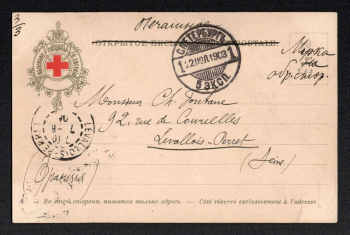 3/3
Печатное
ОТКРЫТОЕ ПИС
POSTALE.
Марка
на
обороте.
С.ПЕТЕРБУРГЪ
1 22 ІЮЛ 1903 1
5 ЭКСП.
Monsieur Ch. Fontane
92, rue de Courcelles
Levallois-Perret
(Seine)
LEVALLOIS-PERRET
Франція
На этой сторонѣ пишется только адресъ — Côté réservé exclusivement à l'adresse.